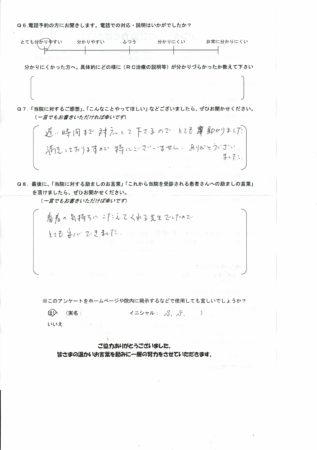 Q6.電話予約の方にお聞きします。電話での対応・説明はいかがでしたか?
とても分かりやすい 分かりやすい ふつう 分かりにくい 非常に分かりにくい
分かりにくかった方へ。具体的にどの様に(RC治療の説明等)が分かりづらかったか教えて下さい
Q7.「当院に対するご感想」、「こんなことやってほしい」などございましたら、ぜひお聞かせください。
(一言でもお書きいただければ幸いです)
遅い時間まで対応して下さるので とても助かりました
満足しておりますので 特にございません。ありがとうござい
ました。
Q8.最後に、「当院に対する励ましのお言葉」「これから当院を受診される患者さんへの励ましの言葉」
を頂けましたら、ぜひお聞かせください。
(一言でもお書きいただければ幸いです)
患者の気持ちにこたえてくれる先生でしたので
とても安心できました。
※このアンケートをホームページや院内に掲示するなどで使用しても宜しいでしょうか?
はい (実名: イニシャル: )
いいえ
ご協力ありがとうございました。
皆さまの温かいお言葉を励みに一層の努力をさせていただきます。